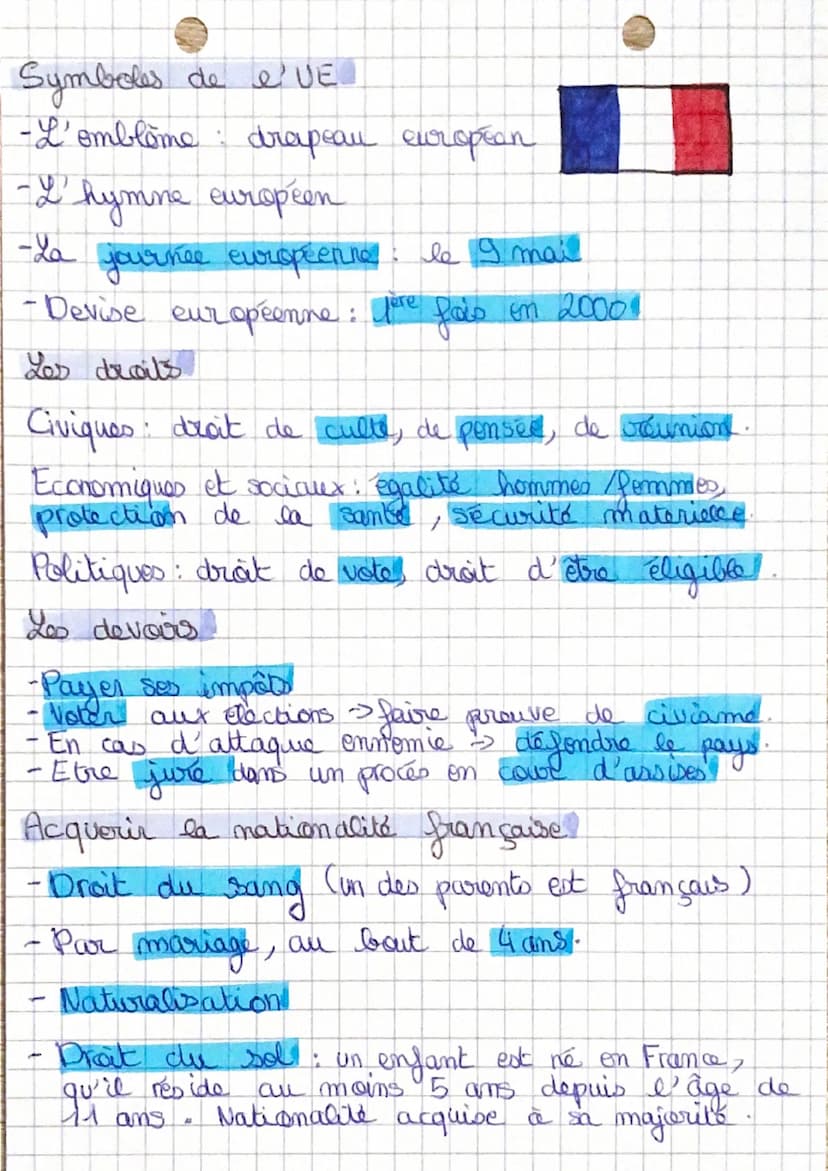 Symboles de l'UE
-L'emblème : drapeau européen
-L'hymne européen
-La journée européenne : le 9 mai
-Devise européenne : 1ère fois en 2000
Les droits
Civiques : droit de culte, de pensée, de réunion.
Economiques et sociaux : égalité hommes/femmes,
protection de la santé, sécurité materielle.
Politiques : droit de vote, droit d'être éligible.
Les devoirs
-Payer ses impôts
-Voter aux élections -> faire preuve de civisme.
-En cas d'attaque ennemie -> défendre le pays.
-Etre juré dans un procès en cour d'assises
Acquerir la nationalité française
-Droit du sang (un des parents est français)
-Par mariage, au bout de 4 ans.
-Naturalisation
-Droit du sol : un enfant est né en France,
qu'il réside au moins 5 ans depuis l'âge de
11 ans. Nationalité acquise à sa majorité.